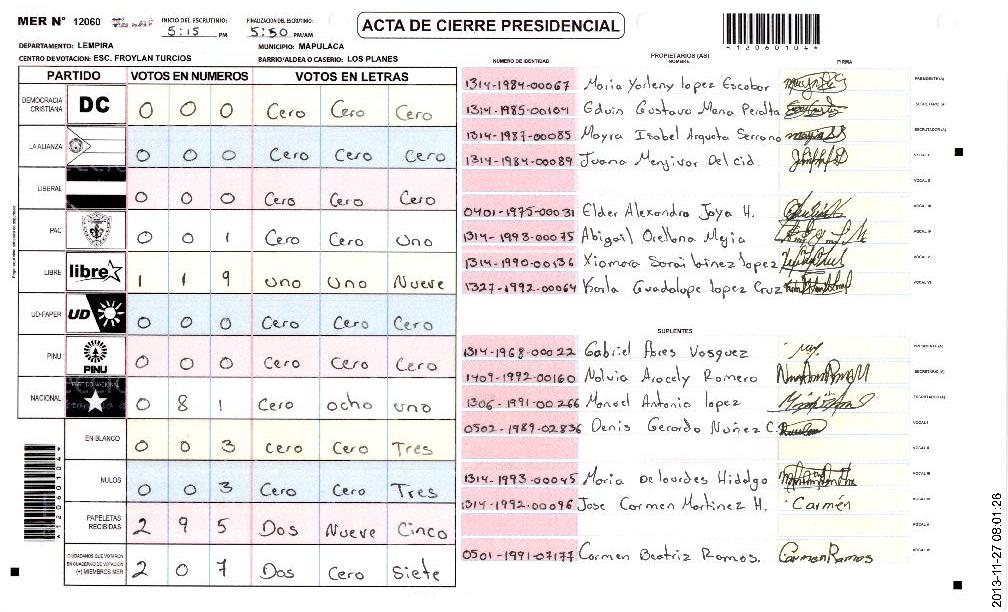 MER N° 12060
INICIO DEL ESCRUTINIO: 5:15 PM
FINALIZACION DEL ESCRUTINIO: 5:50 PM/AM
ACTA DE CIERRE PRESIDENCIAL
*12060104*
DEPARTAMENTO: LEMPIRA
MUNICIPIO: MAPULACA
CENTRO DE VOTACION: ESC. FROYLAN TURCIOS
BARRIO/ALDEA O CASERIO: LOS PLANES
PARTIDO VOTOS EN NUMEROS VOTOS EN LETRAS
DEMOCRACIA CRISTIANA DC 0 0 0 Cero Cero Cero
LA ALIANZA 0 0 0 Cero Cero Cero
LIBERAL 0 0 0 Cero Cero Cero
PAC 0 0 1 Cero Cero uno
LIBRE libre 1 1 9 uno uno Nueve
UD-FAPER UD 0 0 0 Cero Cero Cero
PINU PINU 0 0 0 Cero Cero Cero
NACIONAL PARTIDO NACIONAL 0 8 1 Cero ocho uno
EN BLANCO 0 0 3 Cero Cero Tres
NULOS 0 0 3 Cero Cero Tres
PAPELETAS RECIBIDAS 2 9 5 Dos Nueve Cinco
CIUDADANOS QUE VOTARON EN CUADERNO DE VOTACION (+) MIEMBROS MER 2 0 7 Dos Cero Siete
*12060104*
PROPIETARIOS (AS)
NUMERO DE IDENTIDAD NOMBRE FIRMA
1314-1984-00067 Maria Yorleny lopez Escobar PRESIDENTE (A)
1314-1985-00104 Edvin Gustavo Mena Peralta SECRETARIO (A)
1314-1987-00085 Mayra Isabel Argueta Serrano ESCRUTADOR (A)
1314-1984-00089 Juana Menjivar Del cid. VOCAL I
VOCAL II
0401-1975-00031 Elder Alexandro Joya H. VOCAL III
1314-1993-00075 Abigail Orellana Mejia VOCAL IV
1314-1990-00136 Xiomara Sarai lopez VOCAL V
1327-1992-00064 Karla Guadalupe lopez Cruz VOCAL VI
SUPLENTES
1314-1968-00022 Gabriel Vasquez PRESIDENTE (A)
1409-1992-00160 Nolvia Arocely Romero SECRETARIO (A)
1306-1991-00266 Manuel Antonio lopez ESCRUTADOR (A)
0502-1989-02836 Denis Gerardo Nuñez C. VOCAL I
VOCAL II
1314-1993-00045 Maria De lourdes Hidalgo VOCAL III
1314-1992-00096 Jose Carmen Martinez H. Carmén VOCAL IV
VOCAL V
0501-1991-07177 Carmen Beatriz Ramos. Carmen Ramos VOCAL VI
2013-11-27 08:01:26